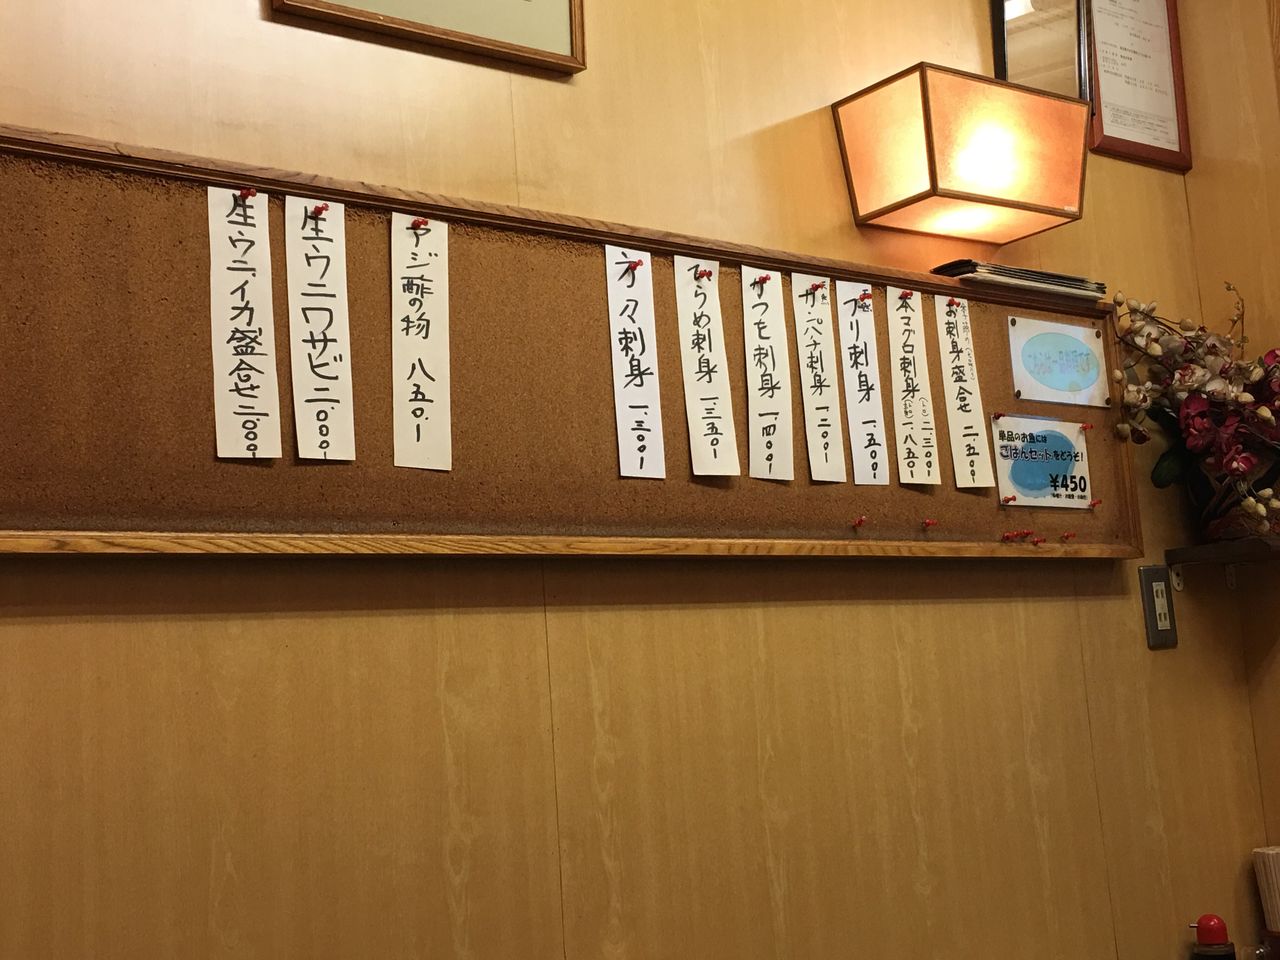 こちらは一品料理です
単品のお魚には
ごはんセットをどうぞ!
¥450
お刺身盛合せ 二、五〇〇-
本マグロ刺身 (トロ) 二、三〇〇-
一、八五〇-
ブリ刺身 一、五〇〇-
カンパチ刺身 一、二〇〇-
かつを刺身 一、四〇〇-
ひらめ刺身 一、三五〇-
刺身 一、三〇〇-
アジ酢の物 八五〇、-
生ウニワサビ 二、〇〇〇-
生ウニ、イカ盛合せ 二、〇〇〇-